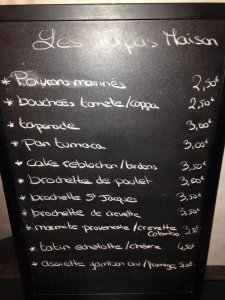 Les Tapas Maison
* Poivrons marinés 2,50€
* bouchées tomate/coppa 2,50€
* tapenade 3,00€
* Pan tumaca 3,00€
* cake reblochon/lardons 3,50€
* brochette de poulet 3,50€
* brochette St Jacques 3,50€
* brochette de crevette 3,50€
* marmite provencale/crevette colombo 3,50€
* tatin echalotte/chèvre 4,50€
* assiette jambon cru/fromage